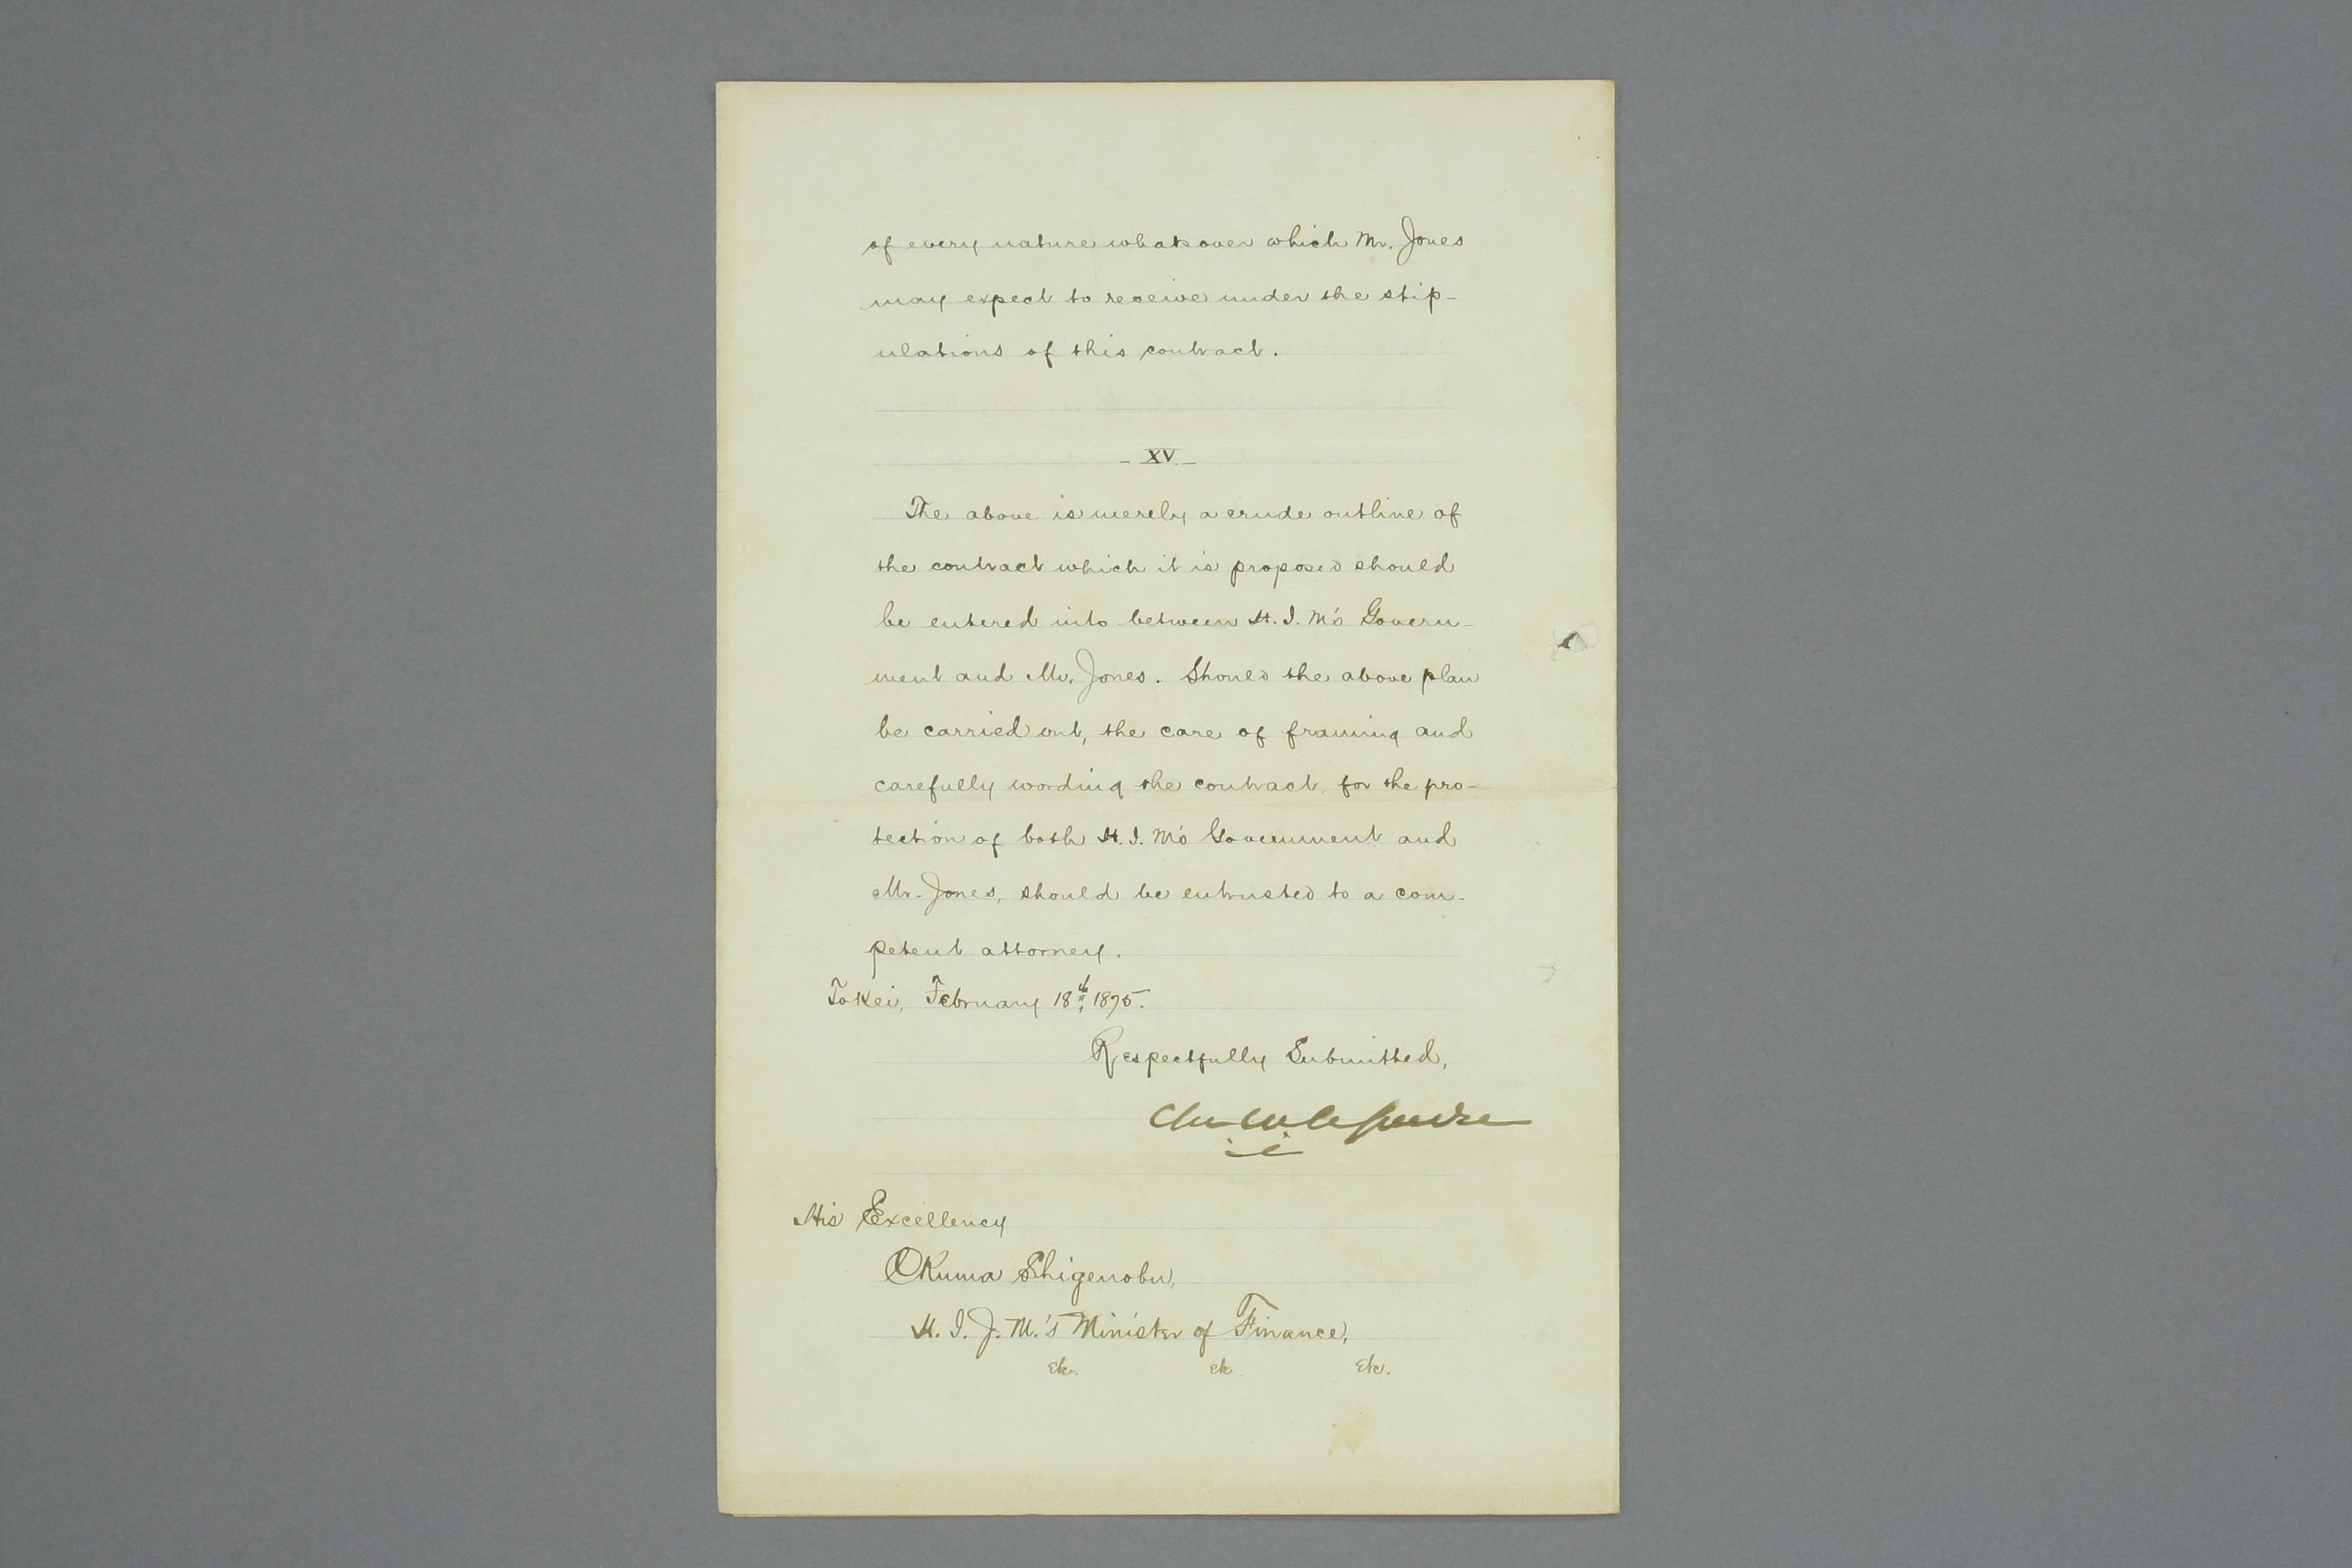 of every nature whatsoever which Mr. Jones
may expect to receive under the stip-
ulations of this contract.
- XV -
The above is merely a crude outline of
the contract which it is proposed should
be entered into between H. I. M's Govern-
ment and Mr. Jones. Should the above plan
be carried out, the care of framing and
carefully wording the contract, for the pro-
tection of both H. I. M's Government and
Mr. Jones, should be entrusted to a com-
petent attorney.
Tokei, February 18th, 1875.
Respectfully Submitted,
His Excellency
Okuma Shigenobu,
H. I. J. M.'s Minister of Finance,
Etc. Etc. Etc.